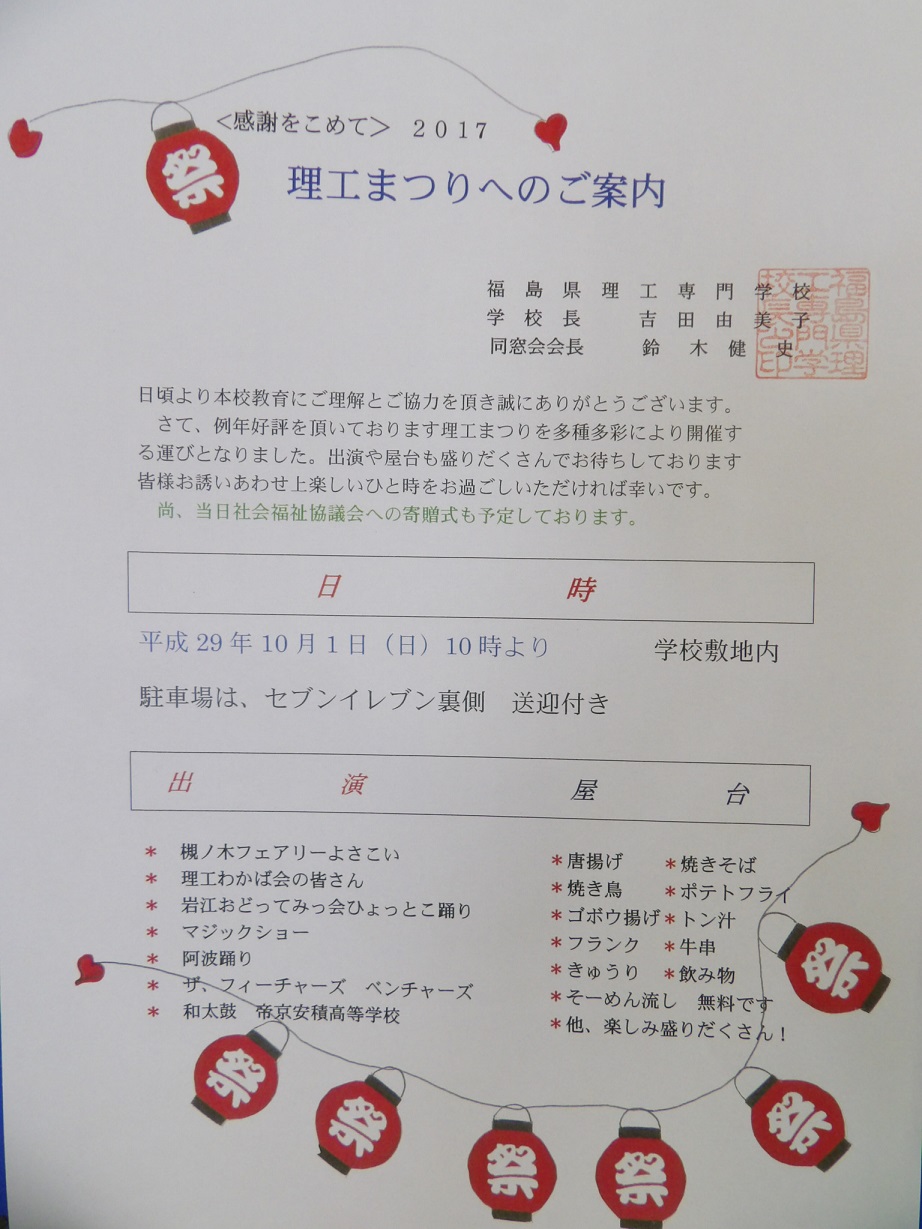 <感謝をこめて> 2017
理工まつりへのご案内
祭
福島県理工専門学校
学校長 吉田由美子
同窓会会長 鈴木健史
福島県理
工専門学
校長之印
日頃より本校教育にご理解とご協力を頂き誠にありがとうございます。
さて、例年好評を頂いております理工まつりを多種多彩により開催す
る運びとなりました。出演や屋台も盛りだくさんでお待ちしております
皆様お誘いあわせ上楽しいひと時をお過ごしいただければ幸いです。
尚、当日社会福祉協議会への寄贈式も予定しております。
日 時
平成29年10月1日(日)10時より 学校敷地内
駐車場は、セブンイレブン裏側 送迎付き
出 演 屋 台
* 槻ノ木フェアリーよさこい
* 理工わかば会の皆さん
* 岩江おどってみっ会ひょっとこ踊り
* マジックショー
* 阿波踊り
* ザ、フィーチャーズ ベンチャーズ
* 和太鼓 帝京安積高等学校
*唐揚げ *焼きそば
*焼き鳥 *ポテトフライ
*ゴボウ揚げ *トン汁
*フランク *牛串
*きゅうり *飲み物
*そーめん流し 無料です
*他、楽しみ盛りだくさん!
祭
祭
祭
祭
祭
祭